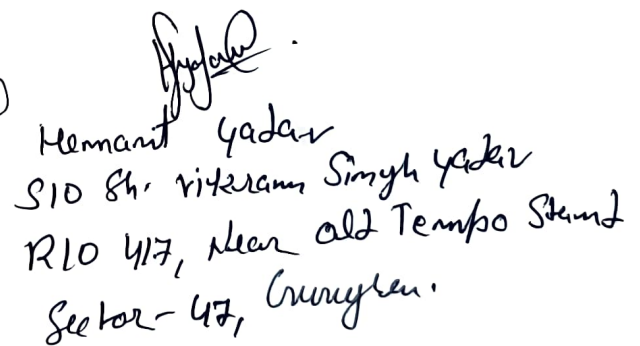 Hemant Yadav
S/O Sh. Vikram Singh Yadav
R/O 417, Near old Tempo Stand
Sector-47, Gurugram.